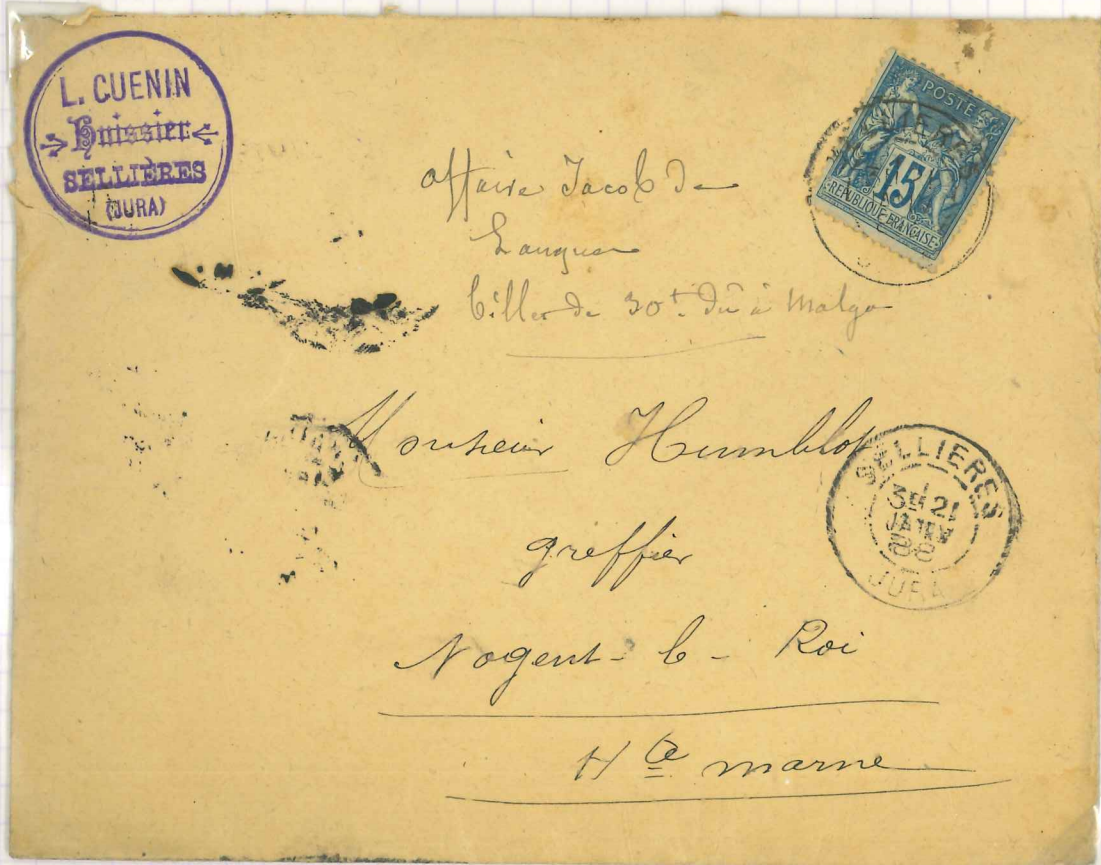 L. CUENIN
Huissier
SELLIÈRES
(JURA)
POSTE
15
REPUBLIQUE FRANCAISE
affaire Jacob de
billet de 30f. dû à
Monsieur Humblot
greffier
Nogent-le-Roi
Hte marne
SELLIERES
3E 21
JANV
88
JURA